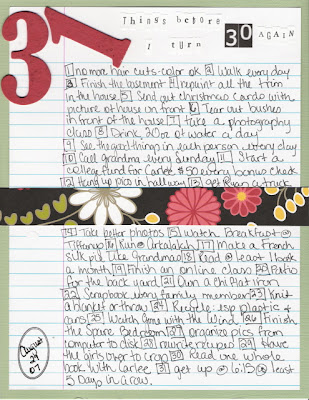 31
Things before
I turn 30 AGAIN
1 no more hair cuts-color ok 2 Walk every day
3 Finish the basement 4 repaint all the trim
in the house 5 Send out christmas cards with
picture of house on front 6 Tear out bushes
in front of the house 7 take a photography
class 8 Drink 30oz of water a day
9 See the good thing in each person every day
10 Call grandma every Sunday 11 Start a
college fund for Carlee $50 every bonus check
12 Hang up pics in hallway 13 get Ryan a truck
14 Take better photos 15 Watch Breakfast @
Tiffanys 16 Run @ 17 Make a French
silk pie Like Grandmas 18 Read @ least 1 book
a month 19 Finish an online class 20 Patio
for the back yard 21 Own a Chi Flat iron
22 Scrapbook every family member 23 Knit
a blanket or throw 24 Recycle: esp plastic &
cans 25 Watch Gone with the Wind 26 Finish
the Spare Bedroom 27 organize pics from
computer to disk 28 29 Have
the girls over to crop 30 Read one whole
book With Carlee 31 get up @ 6:15 @ least
5 Days in a row.
August
24
07